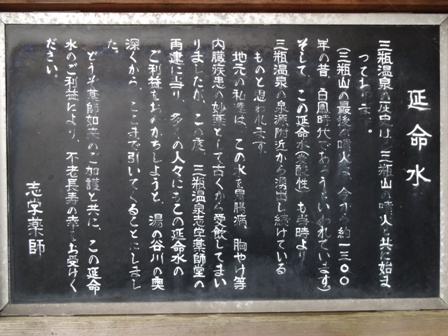 延命水
三瓶温泉の歴史は、三瓶山の噴火と共に始ま
っております。
(三瓶山の最後の噴火は、今から約一三〇〇
年の昔、白鳳時代であろうといわれています)
そして、この延命水(霊酸性)も当時より
三瓶温泉の泉源附近から湧出し続けている
ものと思われます。
地元の私達は、この水を胃腸病、胸やけ等
内臓疾患の妙薬として古くから愛飲してまい
りましたが、この度、三瓶温泉志学薬師堂の
再建に当り、多くの人々にもこの延命水の
ご利益をおわかちしようと、湯の谷川の奥
深くから、ここまで引いてくることにしまし
た。
どうぞ薬師如来のご加護と共に、この延命
水のご利益により、不老長寿の幸をお受けく
ださい。
志学薬師